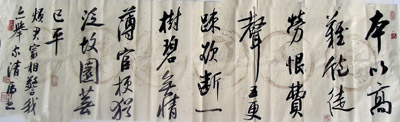 本以高
難飽徒
勞恨費
聲五更
踈欲断一
樹碧無情
薄宦梗猶
泛故園蕪
已平
煩君最相警我
亦舉家清